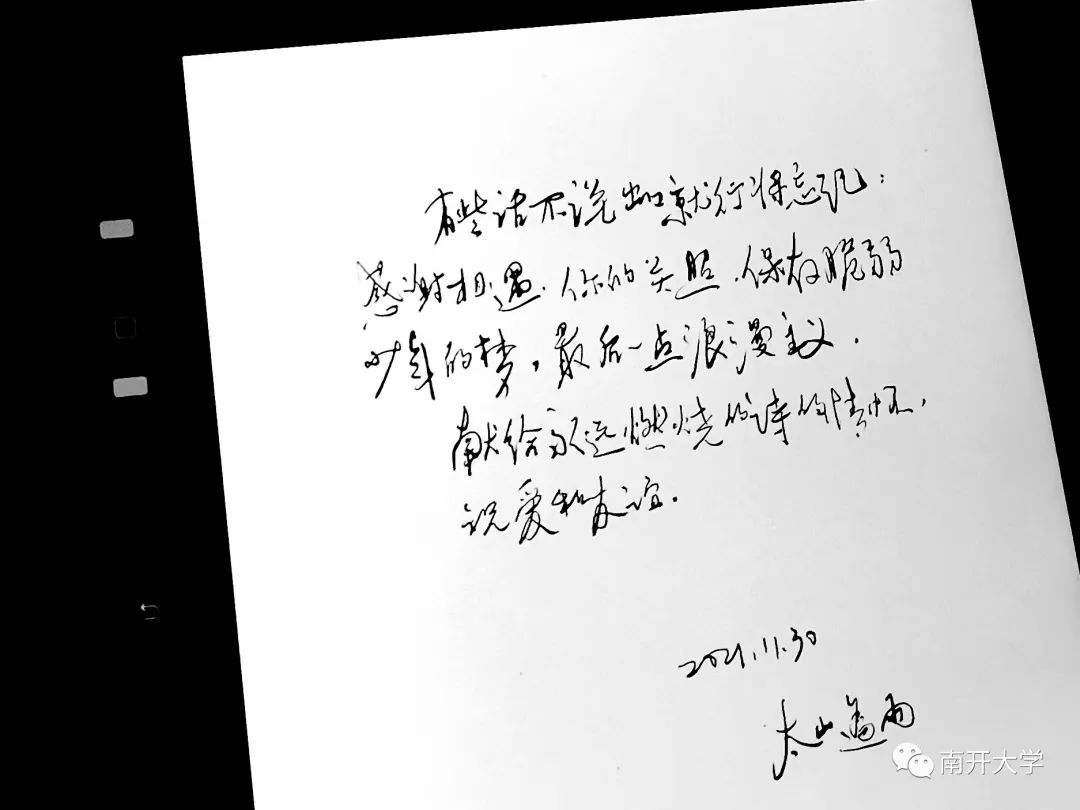 有些话不说出口就行将忘记：
感谢相遇.你的关照.保存脆弱
少年的梦，最后一点浪漫主义.
献给永远燃烧的诗的情怀，
说爱和友谊.
2021.11.30
太山遗雨
南开大学